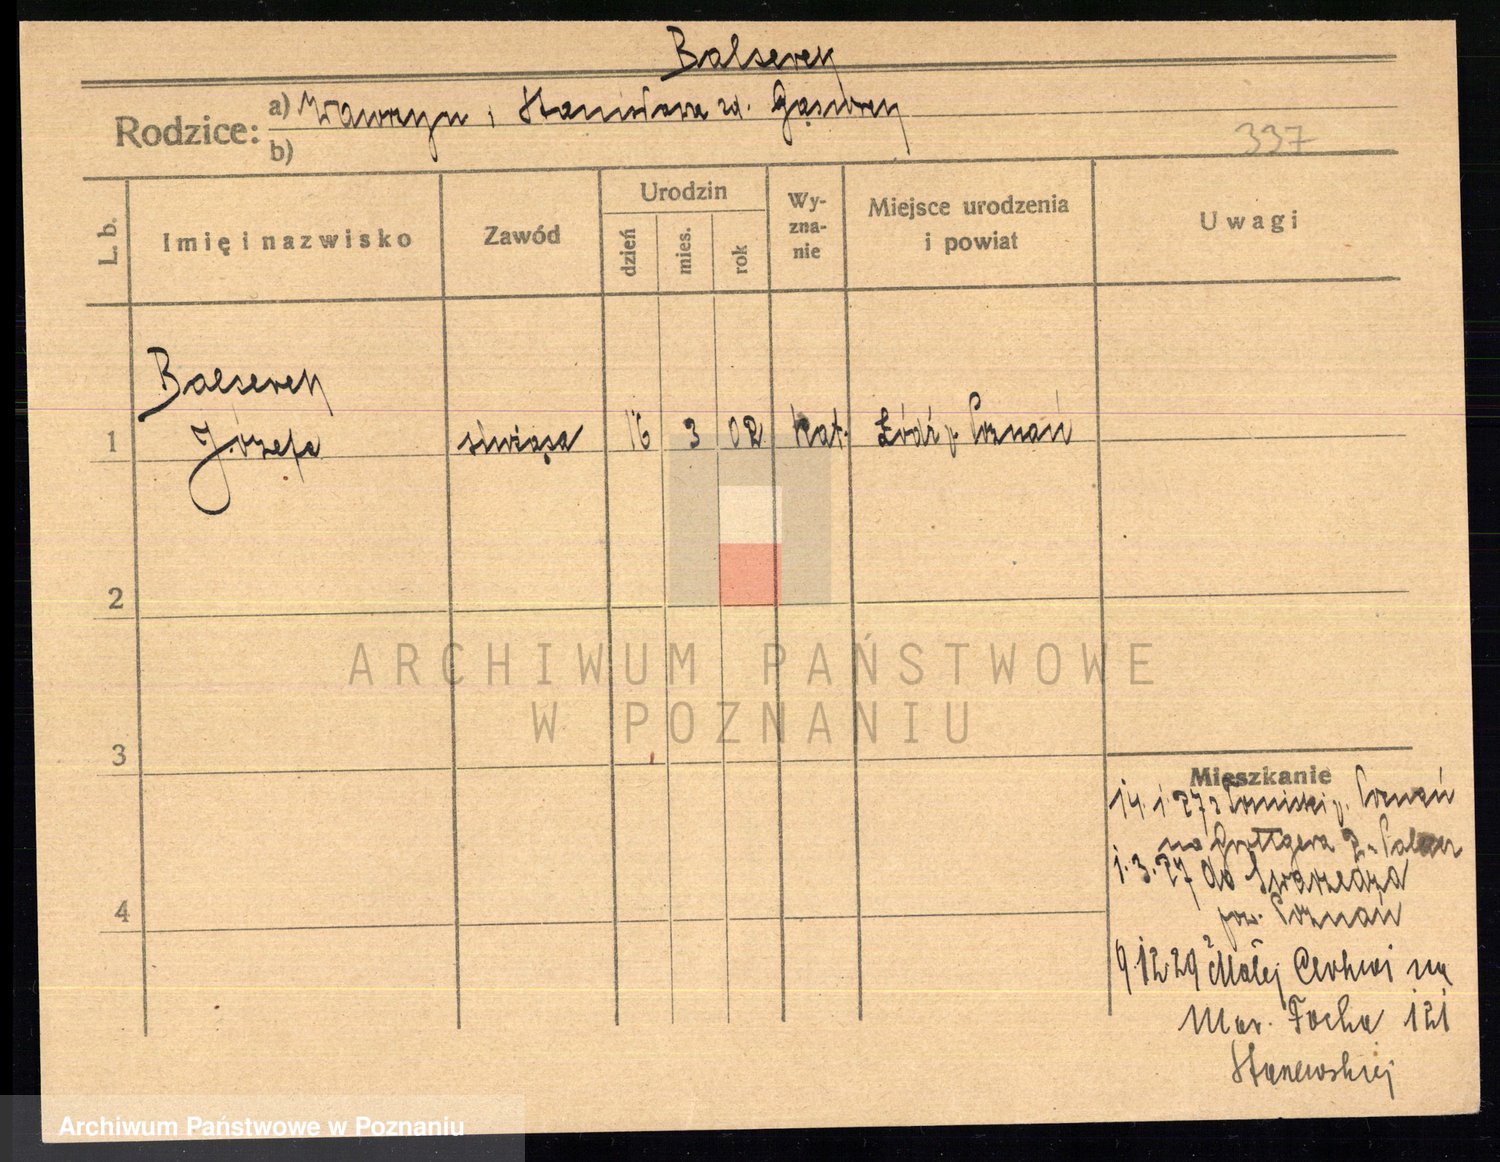 Balserek
Rodzice: a) Wawrzyn i Stanisława zd. Gąsiorek
b)
337
L. b.
Imię i nazwisko
Zawód
Urodzin
dzień
mies.
rok
Wy-
zna-
nie
Miejsce urodzenia
i powiat
Uwagi
Balserek
1 Józefa służąca 16 3 02 kat. Łódź p. Poznań
2
ARCHIWUM PAŃSTWOWE
W POZNANIU
3
4
Mieszkanie
14.1.27 z p. Poznań
na Grottgera 2
1.3.27 do Swarzędza
pow. Poznań
9.12.29 z Małej na
Mar. Focha 121
Archiwum Państwowe w Poznaniu